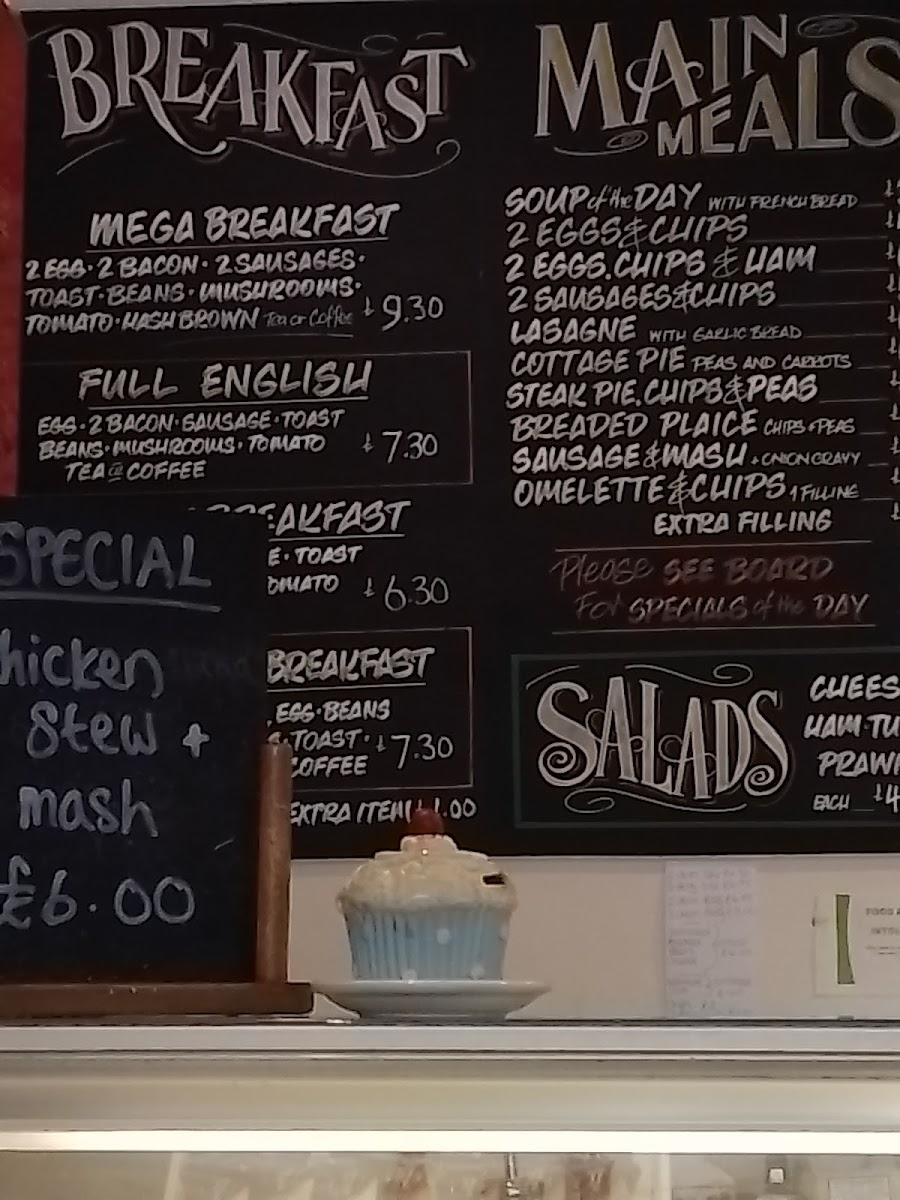 BREAKFAST
MEGA BREAKFAST
2 EGG · 2 BACON · 2 SAUSAGES ·
TOAST · BEANS · MUSHROOMS ·
TOMATO · HASH BROWN Tea or Coffee £9.30
FULL ENGLISH
EGG · 2 BACON · SAUSAGE · TOAST
BEANS · MUSHROOMS · TOMATO £7.30
TEA or COFFEE
EAKFAST
E · TOAST
OMATO £6.30
BREAKFAST
, EGG · BEANS
TOAST · £7.30
COFFEE
EXTRA ITEM £1.00
SPECIAL
hicken
Stew +
mash
£6.00
MAIN
MEALS
SOUP of the DAY WITH FRENCH BREAD
2 EGGS & CHIPS
2 EGGS, CHIPS & HAM
2 SAUSAGES & CHIPS
LASAGNE WITH GARLIC BREAD
COTTAGE PIE PEAS AND CARROTS
STEAK PIE, CHIPS & PEAS
BREADED PLAICE CHIPS & PEAS
SAUSAGE & MASH + ONION GRAVY
OMELETTE & CHIPS 1 FILLING
EXTRA FILLING
Please SEE BOARD
For SPECIALS of the DAY
SALADS
CHEES
HAM · TU
PRAW
EACH £4